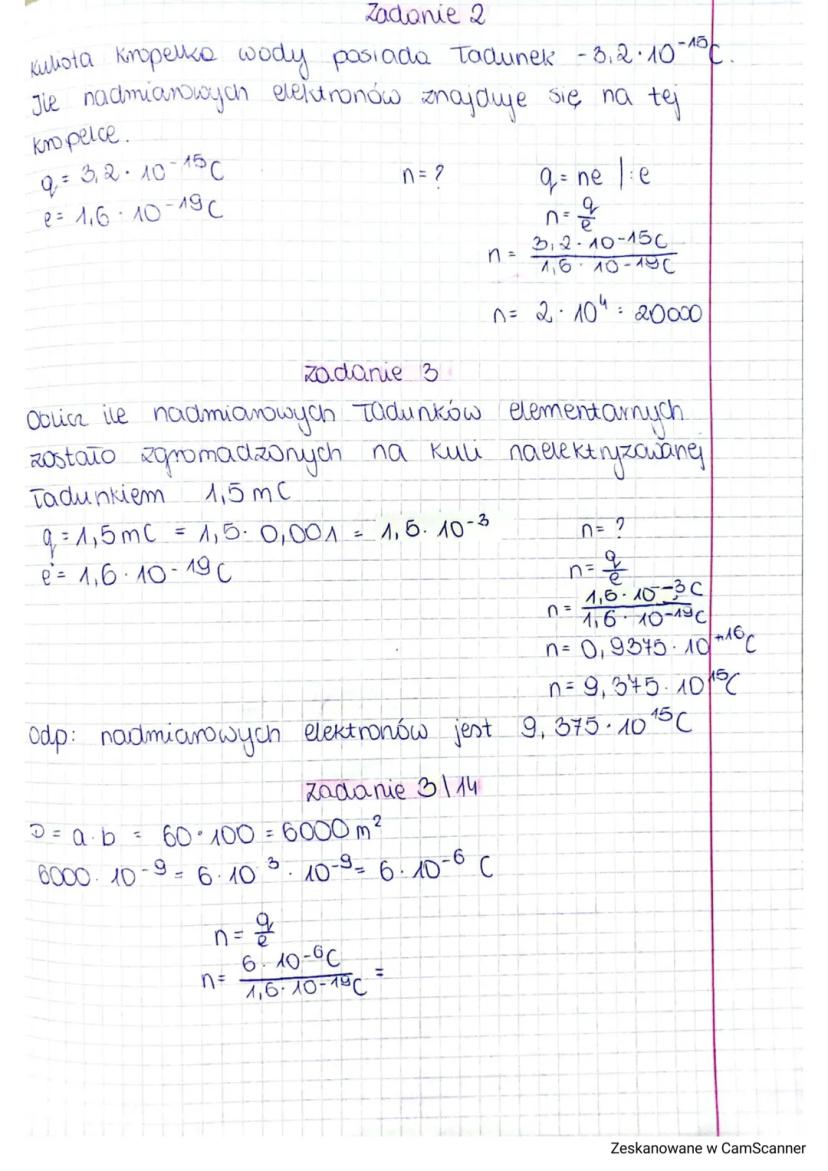 Zadanie 2
Kulista kropelka wody posiada ładunek -3,2·10⁻¹⁵C.
Ile nadmiarowych elektronów znajduje się na tej
kropelce.
q = 3,2 · 10⁻¹⁵C n = ? q = ne |:e
e = 1,6 · 10⁻¹⁹C n = q/e
n = 3,2·10-15C / 1,6·10-19C
n = 2·10⁴ = 20000
Zadanie 3
Oblicz ile nadmiarowych ładunków elementarnych
zostało zgromadzonych na kuli naelektryzowanej
ładunkiem 1,5 mC
q = 1,5 mC = 1,5 · 0,001 = 1,5 · 10⁻³ n = ?
e = 1,6 · 10-19C n = q/e
n = 1,5·10-3C / 1,6·10-19C
n = 0,9375·10⁺¹⁶C
n = 9,375·10¹⁵C
Odp: nadmiarowych elektronów jest 9,375·10¹⁵C
Zadanie 3|14
D = a·b = 60·100 = 6000 m²
6000·10⁻⁹ = 6·10³·10⁻⁹ = 6·10⁻⁶ C
n = q/e
n = 6·10-⁶C / 1,6·10-19C =
Zeskanowane w CamScanner